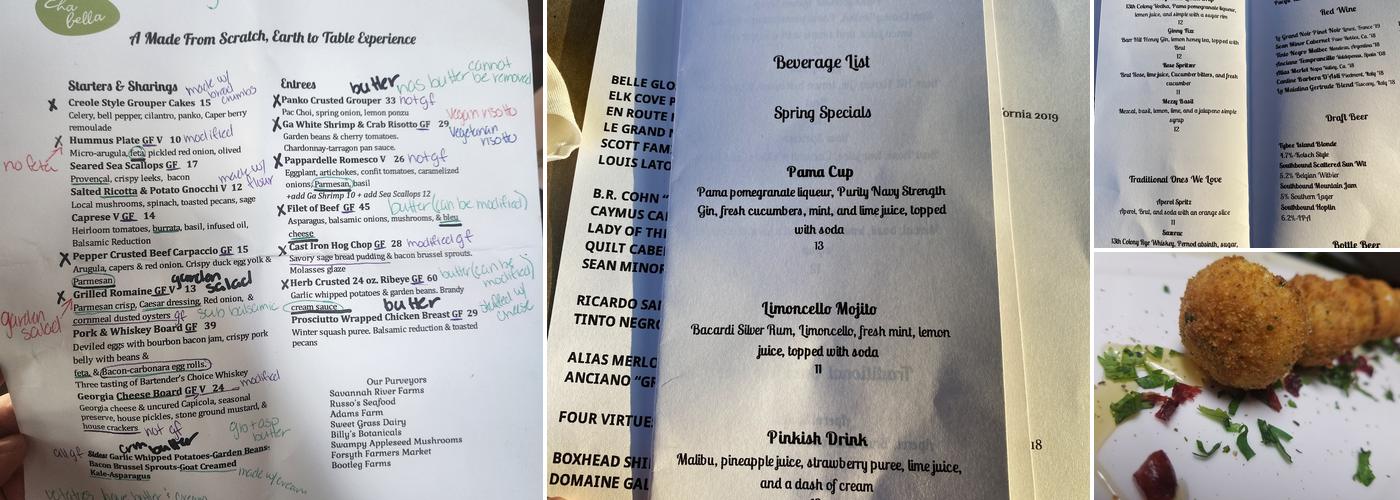 Cha
bella
A Made From Scratch, Earth to Table Experience
Starters & Sharings
made w/
bread
crumbs
Creole Style Grouper Cakes 15
Celery, bell pepper, cilantro, panko, Caper berry
remoulade
Hummus Plate GF V 10 modified
Micro-arugula, feta, pickled red onion, olived
no feta
Seared Sea Scallops GF 17
Provençal, crispy leeks, bacon
made w/
flour
Salted Ricotta & Potato Gnocchi V 12
Local mushrooms, spinach, toasted pecans, sage
Caprese V GF 14
Heirloom tomatoes, burrata, basil, infused oil,
Balsamic Reduction
Pepper Crusted Beef Carpaccio GF 15
Arugula, capers & red onion. Crispy duck egg yolk &
Parmesan
garden
salad
Grilled Romaine GF V 13
Parmesan crisp, Caesar dressing, Red onion, &
cornmeal dusted oysters gf sub balsamic
garden
salad
Pork & Whiskey Board GF 39
Deviled eggs with bourbon bacon jam, crispy pork
belly with beans &
feta, & Bacon-carbonara egg rolls.
Three tasting of Bartender's Choice Whiskey
Georgia Cheese Board GF V 24 modified
Georgia cheese & uncured Capicola, seasonal
preserve, house pickles, stone ground mustard, &
house crackers not gf
butter
Sides: Garlic Whipped Potatoes-Garden Beans-
Bacon Brussel Sprouts-Goat Creamed
Kale-Asparagus
made w/cream
Entrees
butter has butter cannot
be removed
Panko Crusted Grouper 33 not gf
Pac Choi, spring onion, lemon ponzu
Vegan risotto
Ga White Shrimp & Crab Risotto GF 29
Vegetarian
risotto
Garden beans & cherry tomatoes.
Chardonnay-tarragon pan sauce.
Pappardelle Romesco V 26 not gf
Eggplant, artichokes, confit tomatoes, caramelized
onions, Parmesan, basil
+add Ga Shrimp 10 + add Sea Scallops 12
Filet of Beef GF 45 butter (can be modified)
Asparagus, balsamic onions, mushrooms, & bleu
cheese
Cast Iron Hog Chop GF 28 modified gf
Savory sage bread pudding & bacon brussel sprouts.
Molasses glaze
Herb Crusted 24 oz. Ribeye GF 60 butter (can be
modified)
Garlic whipped potatoes & garden beans. Brandy
cream sauce
butter
Prosciutto Wrapped Chicken Breast GF 29 stuffed w/
cheese
Winter squash puree. Balsamic reduction & toasted
pecans
Our Purveyors
Savannah River Farms
Russo's Seafood
Adams Farm
Sweet Grass Dairy
Billy's Botanicals
Swampy Appleseed Mushrooms
Forsyth Farmers Market
Bootleg Farms
BELLE GLO
ELK COVE P
EN ROUTE
LE GRAND
SCOTT FAM
LOUIS LATO
B.R. COHN "
CAYMUS CA
LADY OF TH
QUILT CABE
SEAN MINOR
RICARDO SA
TINTO NEGR
ALIAS MERLO
ANCIANO "GR
FOUR VIRTUE
BOXHEAD SHI
DOMAINE GAL
Beverage List
Spring Specials
Pama Cup
Pama pomegranate liqueur, Purity Navy Strength
Gin, fresh cucumbers, mint, and lime juice, topped
with soda
13
Limoncello Mojito
Bacardi Silver Rum, Limoncello, fresh mint, lemon
juice, topped with soda
11
Pinkish Drink
Malibu, pineapple juice, strawberry puree, lime juice,
and a dash of cream
ornia 2019
18
13th Colony Vodka, Pama pomegranate liqueur,
lemon juice, and simple with a sugar rim
12
Ginny Fizz
Barr Hill Honey Gin, lemon honey tea, topped with
Brut
12
Rose Spritzer
Brut Rose, lime juice, Cucumber bitters, and fresh
cucumber
11
Mezzy Basil
Mezcal, basil, lemon, lime, and a jalapeno simple
syrup
12
Traditional Ones We Love
Aperol Spritz
Aperol, Brut, and soda with an orange slice
11
Sazerac
13th Colony Rye Whiskey, Pernod absinth, sugar,
Red Wine
Le Grand Noir Pinot Noir Lances, France '19
Sean Minor Cabernet Paso Robles, Ca. '18
Tinto Negro Malbec Mendoza, Argentina '18
Anciano Tempranillo Valdepenas, Spain '08
Alias Merlot Napa Valley, Ca. '18
Cantine Barbera D'Asti Piedmont, Italy '18
La Maialina Gertrude Blend Tuscany, Italy '18
Draft Beer
Tybee Island Blonde
4.7%-Kolsch Style
Southbound Scattered Sun Wit
5.2% Belgian Witbier
Southbound Mountain Jam
5% Southern Lager
Southbound Hoplin
6.2%-IPA
Bottle Beer